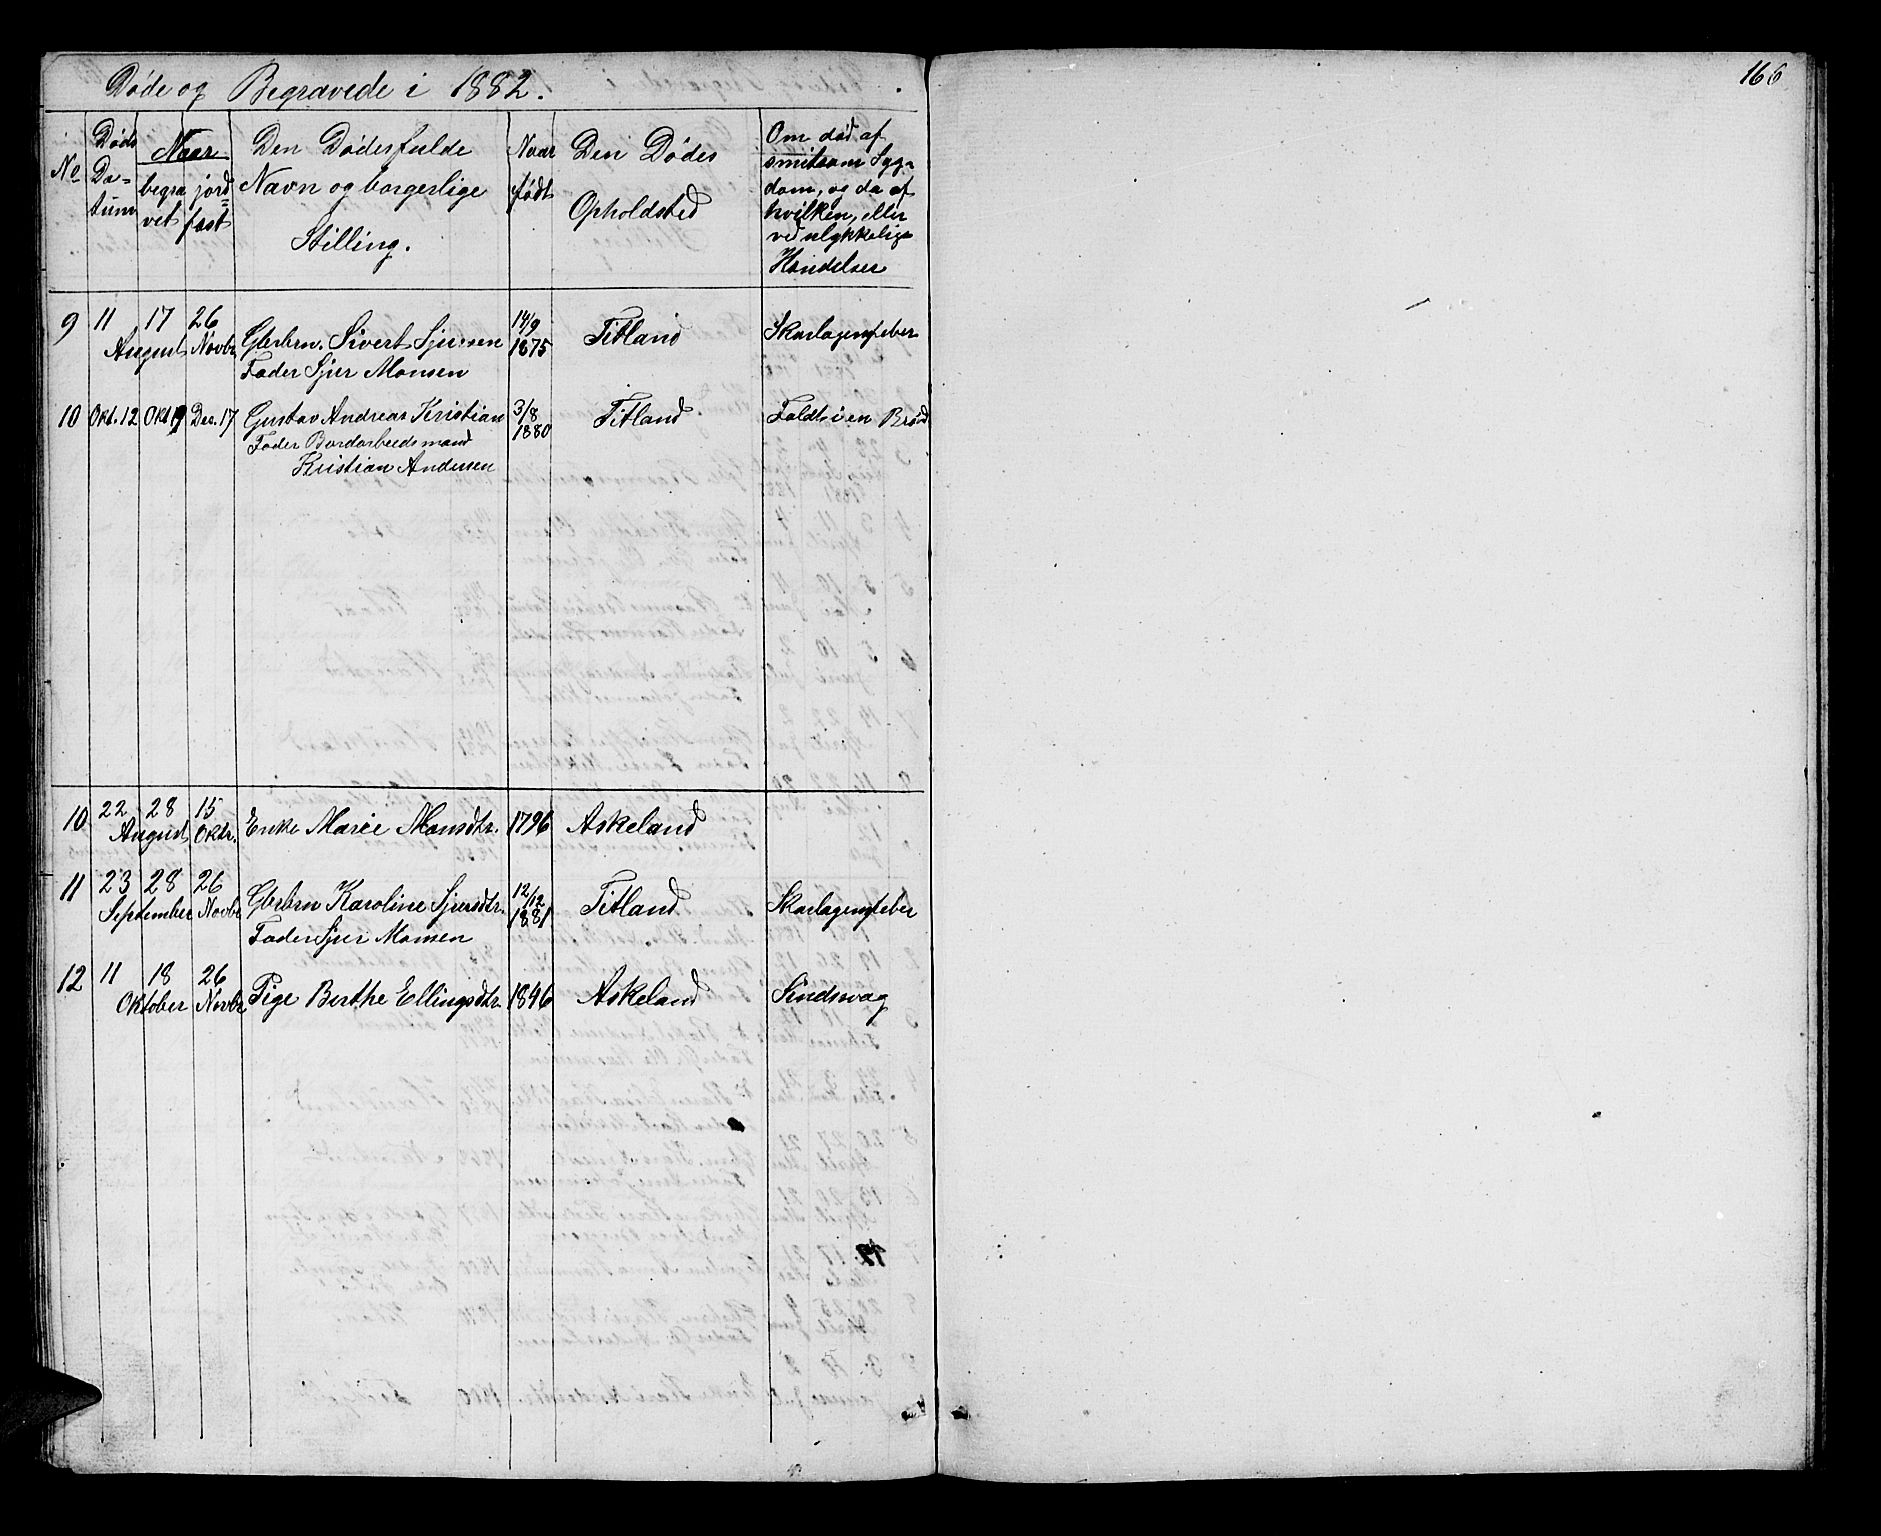 166
Døde og Begravede i 1882.
No
Døds Da= tum
Naar
begra vet
jord= fæst
Den Dødes fulde Navn og borgerlige Stilling.
Naar født
Den Dødes Opholdsted
Om død af smitsom Syg= dom, og da af hvilken, eller ved ulykkelige Hændelser
9 11 17 August 26 Novbr. Gbrbrn. Sivert Sjursen 14/9 1875 Titland Skarlagensfeber
Fader Sjur Monsen
10 Okt. 12 Okt 19 Dec. 17 Gustav Andreas Kristian 3/8 1880 Titland. Faldt i en Brønd
Fader Bordarbeidsmand
Kristian Andersen
10 22 28 August 15 Oktr. Enke Marie Monsdtr. 1796 Askeland
11 23 28 September 26 Novbr Gbrbrn Karoline Sjursdtr. 12/12 1881 Titland Skarlagensfeber
Fader Sjur Monsen
12 11 18 Oktober 26 Novbr Pige Berthe Ellingsdtr. 1846 Askeland Sindssvag